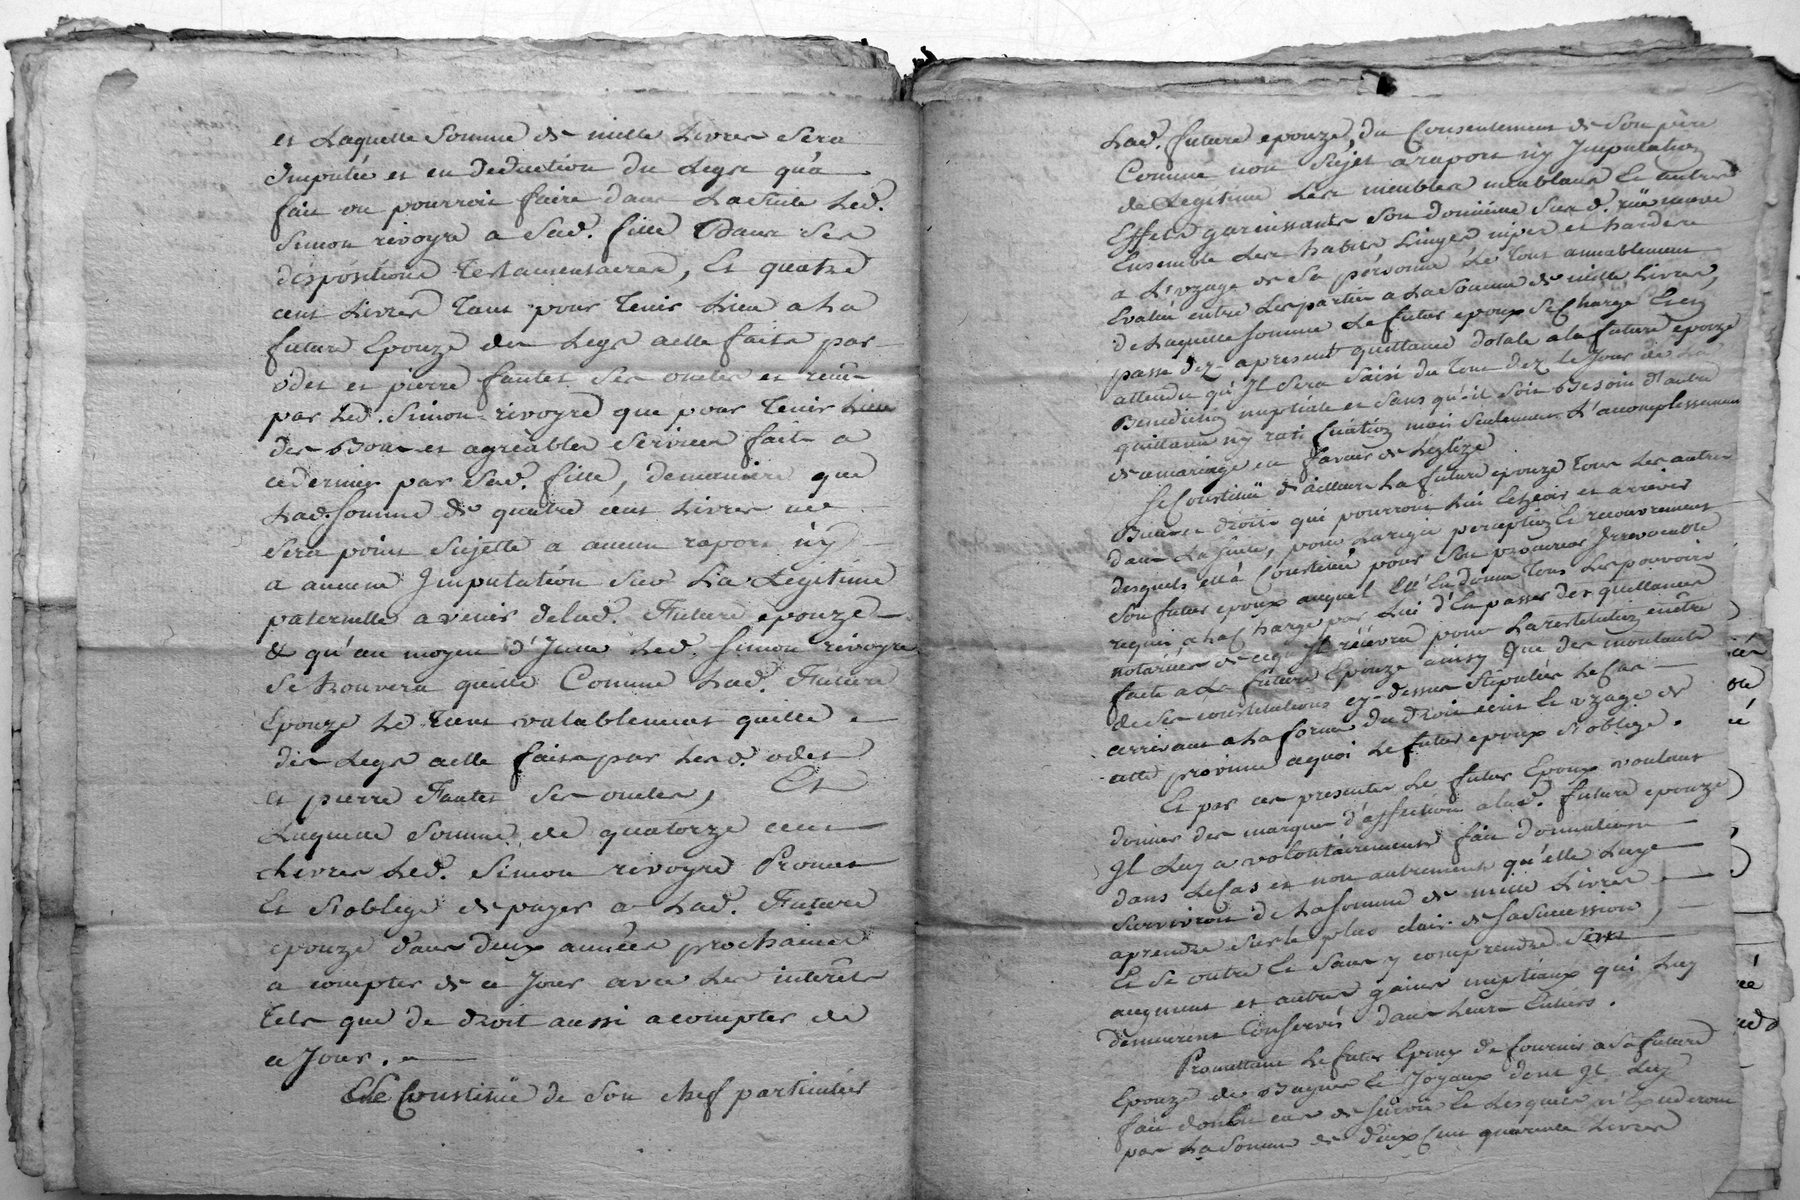 et Laquelle Somme de mille Livres Sera
Imputée et en Deduction du Legs qu'a
fait ou pourroit faire dans La Suite Led.
Simon rivoyre a Sad. fille Dans Ses
dispositions Testamentaires, Et quatre
cent Livres Tant pour Tenir Lieu a La
future Epouze des Legs a elle faits par
odet et pierre fautet Ses oncles et
par Led. Simon rivoyre que pour Tenir Lieu
des Bons et agréables Services faits a
ce dernier par Sad. fille, demeniere que
Lad. Somme de quatre cent Livres ne
Sera point Sujette a aucun raport n'y
a aucune Imputation Sur La Legitime
paternelle a venir de lad. Future epouze
& qu'au moyen d'Jcelle Led. Simon rivoyre
Se trouvera quitte Comme Lad. Future
Epouze Le Tient valablement quitte
des Legs a elle faits par Lesd. odet
et pierre Fautet Ses oncles, Et
Laquelle Somme de quatorze cent
Livres Led. Simon rivoyre Promet
Et S'oblege de payer a Lad. Future
epouze dans deux années prochaines
a compter de ce Jour avec Les interêts
Tels que de droit aussi a compter de
ce Jour.
Elle Constitüe de Son chef particulier
Lad. future epouze, du Consentement de Son père
Comme non Sujet a raport n'y Imputation
de Legitime Les meubles meublans Et autres
Effets garnissants Son domicile Sur d. rüe neuve
Ensemble Les habits Linges nipes et hardes
a L'uzage de Sa personne Le Tout amiablement
Evalué entre Les parties a La Somme de mille Livres,
de Laquelle Somme Le futur epoux Se Charge Et en
passe dez apresent quittance dotale a la future epouze
attendu qu'Jl Sera Saisi du Tout dez Le Jour de La
Benediction nuptiale et Sans qu'il Soit Besoin d'autre
quittance n'y mais Seulement L'accomplissement
de ce mariage en favur de Leglize
Se Constitüe d'ailleurs La future epouze Tous Les autres
Biens et droits qui pourroit Lui Echeoir et arriver
dans La Suite, pour La regie perception Et recouvrement
desquels Elle Constitüe pour Son procureur Irrevocable
Son futur epoux auquel Elle En donne Tous Les pouvoirs
requis a La Charge par Lui d'En passer des quittances
notariées de ce qu'Jl recevra pour La restitution en être
faite a La future Epouze ainsy que des montants
de Ses constitutions cy-dessus Stipulées Le Cas
arrivant a La forme du droit ecrit Et uzage de
cette province a quoi Le futur epoux S'oblege.
Et par ces presentes Le futur Epoux voulant
donner des marques d'affection a Lad. future epouze
Jl Luy a volontairement fait donnation
dans Le Cas et non autrement qu'elle Luy
Survivroit de La Somme de mille Livres
a prendre Sur le plus clair de Sa Succession,
Et Ce outre Et Sans y comprendre Ses
augment et autres gains nuptiaux qui Luy
demeurent Conservés dans Leur Entier.
Promettant Le futur Epoux de fournir a Sa future
Epouze des Bagues Et Joyaux dont Jl Luy
fait don En cas de Survie Et Lesquels n'Excederont
pas La Somme de deux Cent quarante Livres